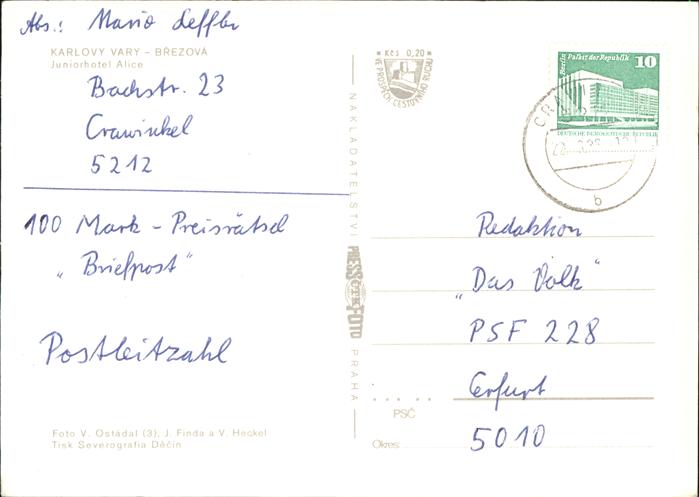 Abs.: Mario Leffler
KARLOVY VARY – BŘEZOVÁ
Juniorhotel Alice
Bachstr. 23
Crawinkel
5212
100 Mark - Preisrätsel
„Briefpost“
Postleitzahl
Foto V. Ostádal (3), J. Finda a V. Heckel
Tisk Severografia Děčín
Kčs 0,20
VE PROSPĚCH CESTOVNÍHO RUCHU
NAKLADATELSTVÍ
PRESSFOTO
PRAHA
Berlin Palast der Republik
10
DEUTSCHE DEMOKRATISCHE REPUBLIK
b
Redaktion
„Das Volk“
PSF 228
Erfurt
PSČ
5010
Okres: